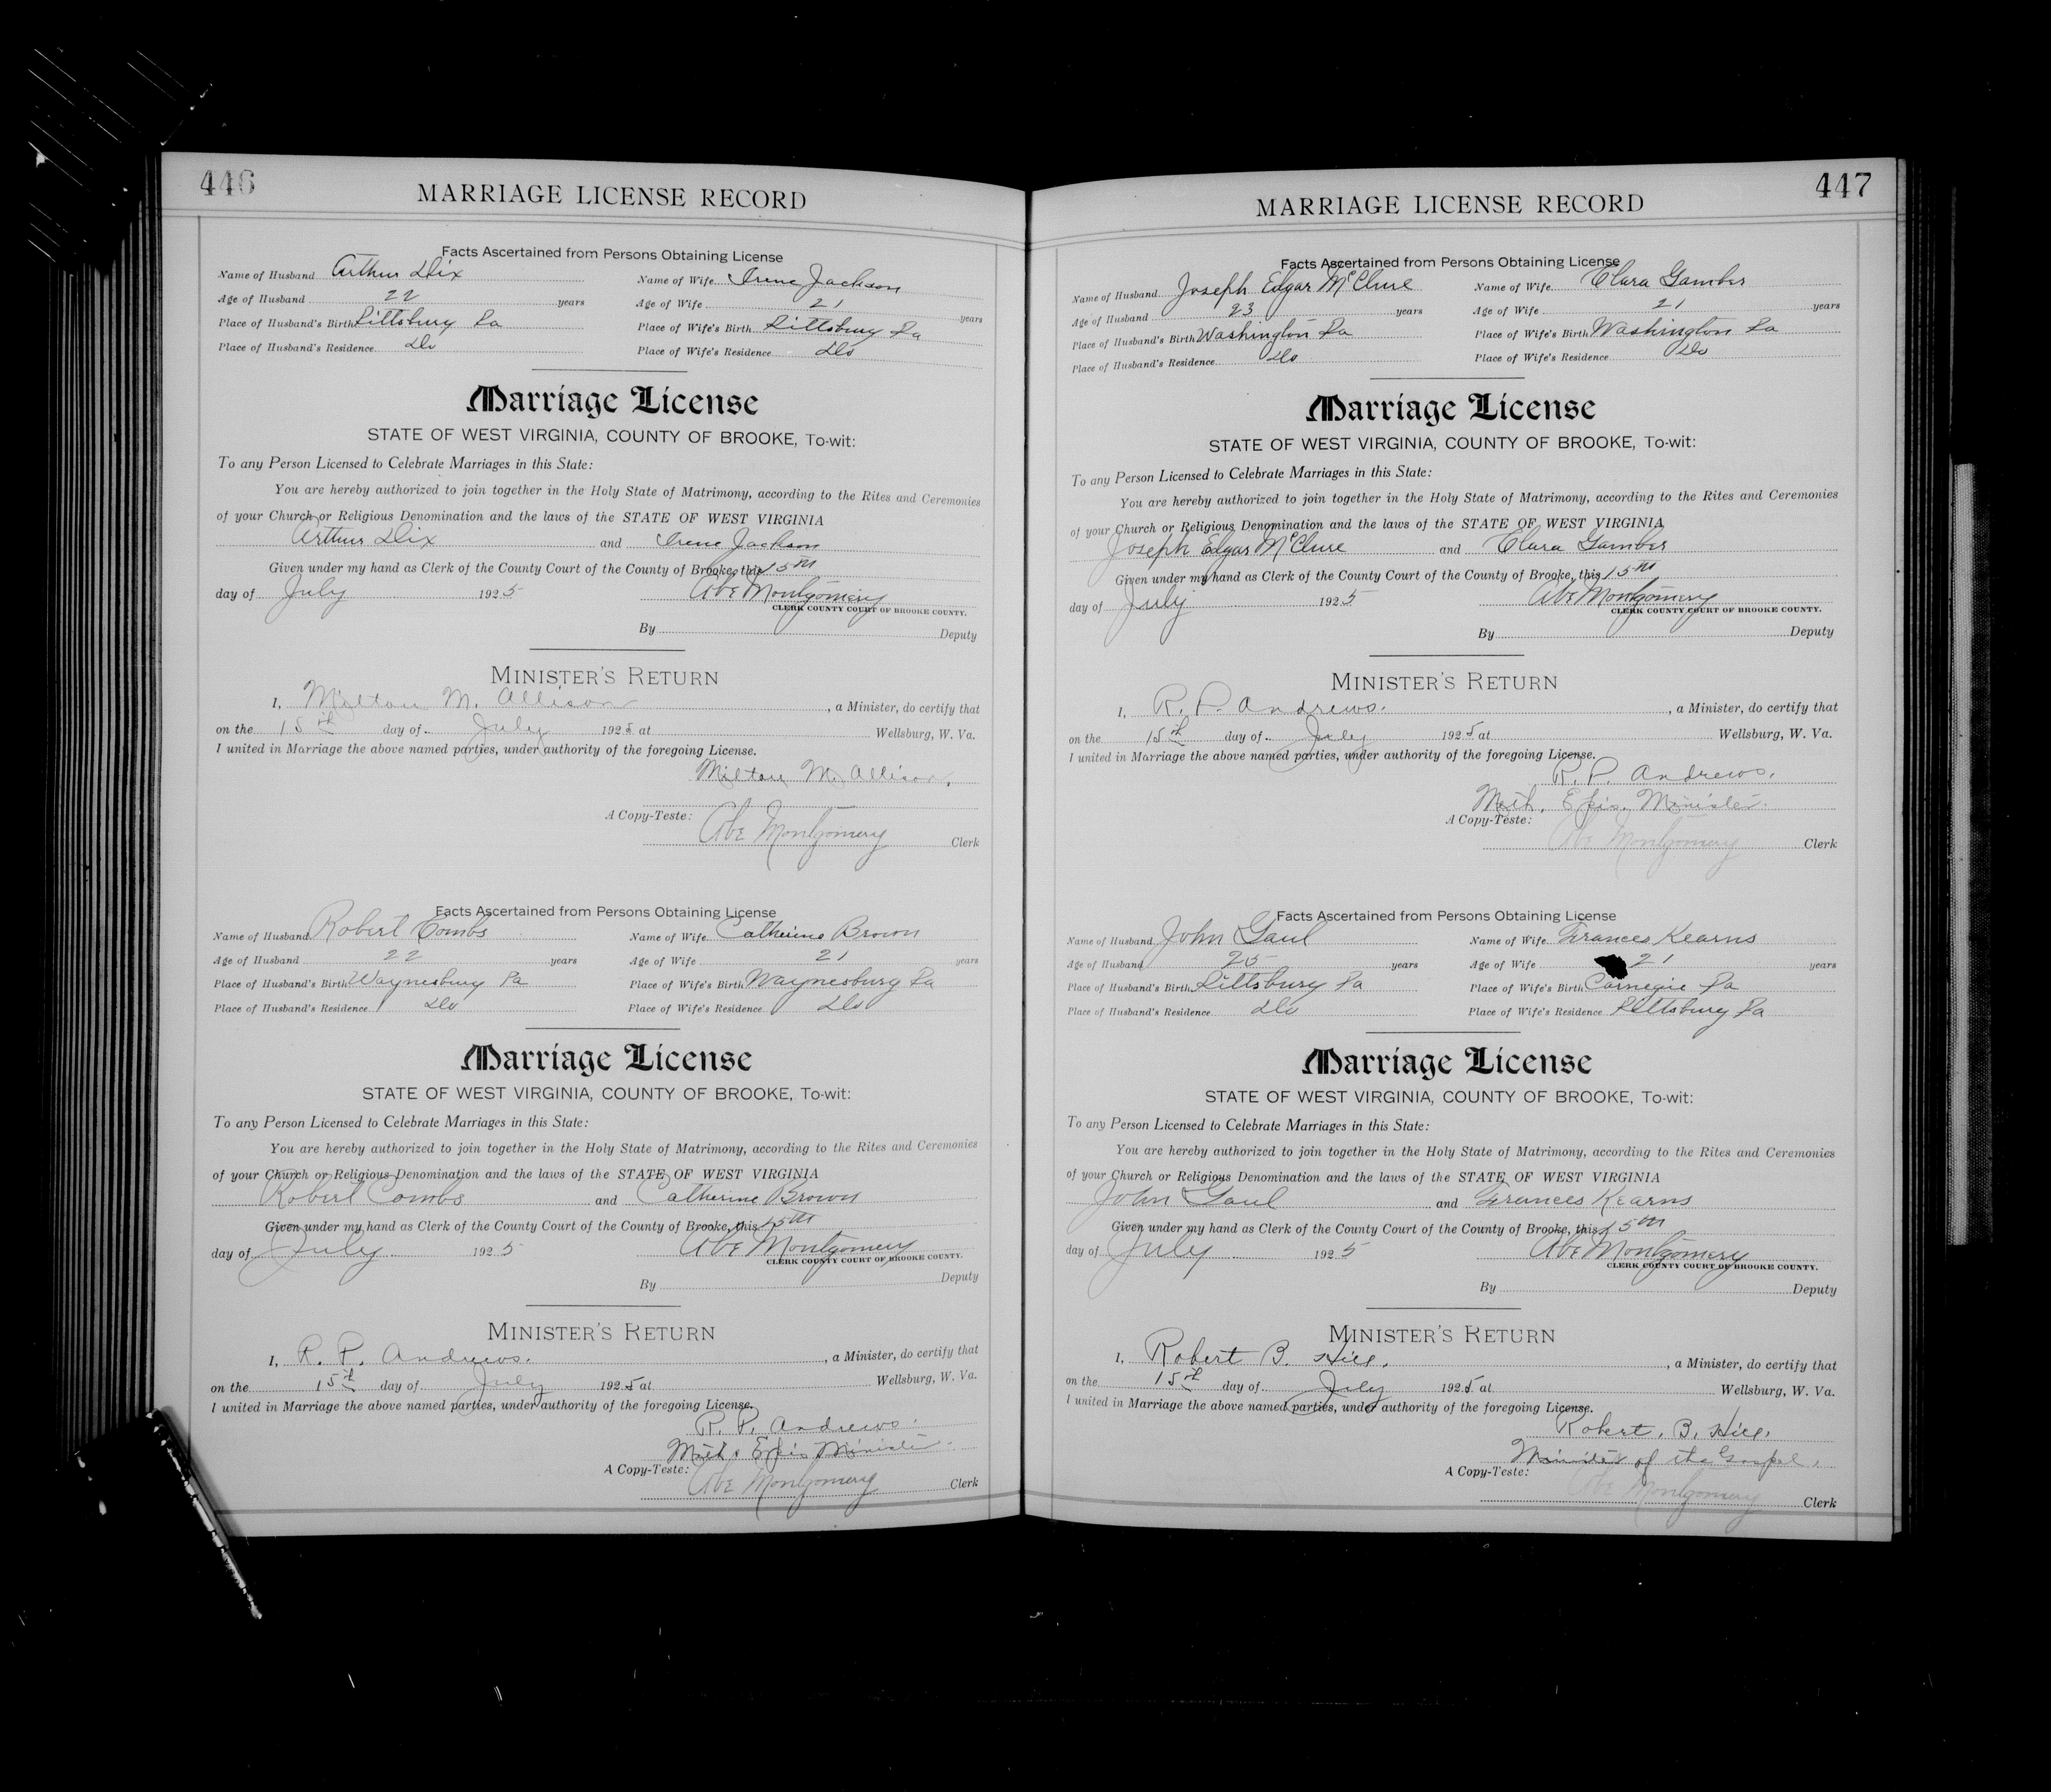 446
MARRIAGE LICENSE RECORD
Facts Ascertained from Persons Obtaining License
Name of Husband Arthur Dix Name of Wife Irene Jackson
Age of Husband 22 years Age of Wife 21 years
Place of Husband's Birth Pittsburg Pa Place of Wife's Birth Pittsburg Pa
Place of Husband's Residence Do Place of Wife's Residence Do
Marriage License
STATE OF WEST VIRGINIA, COUNTY OF BROOKE, To-wit:
To any Person Licensed to Celebrate Marriages in this State:
You are hereby authorized to join together in the Holy State of Matrimony, according to the Rites and Ceremonies
of your Church or Religious Denomination and the laws of the STATE OF WEST VIRGINIA
Arthur Dix and Irene Jackson
Given under my hand as Clerk of the County Court of the County of Brooke, this 15th
day of July 1925 Abe Montgomery
CLERK COUNTY COURT OF BROOKE COUNTY.
By Deputy
MINISTER'S RETURN
I, Milton M. Allison, a Minister, do certify that
on the 15th day of July 1925 at Wellsburg, W. Va.
I united in Marriage the above named parties, under authority of the foregoing License.
Milton M. Allison.
A Copy-Teste:
Abe Montgomery Clerk
Facts Ascertained from Persons Obtaining License
Name of Husband Robert Combs Name of Wife Catherine Brown
Age of Husband 22 years Age of Wife 21 years
Place of Husband's Birth Waynesburg Pa Place of Wife's Birth Waynesburg Pa
Place of Husband's Residence Do Place of Wife's Residence Do
Marriage License
STATE OF WEST VIRGINIA, COUNTY OF BROOKE, To-wit:
To any Person Licensed to Celebrate Marriages in this State:
You are hereby authorized to join together in the Holy State of Matrimony, according to the Rites and Ceremonies
of your Church or Religious Denomination and the laws of the STATE OF WEST VIRGINIA
Robert Combs and Catherine Brown
Given under my hand as Clerk of the County Court of the County of Brooke, this 15th
day of July 1925 Abe Montgomery
CLERK COUNTY COURT OF BROOKE COUNTY.
By Deputy
MINISTER'S RETURN
I, R. P. Andrews., a Minister, do certify that
on the 15th day of July 1925 at Wellsburg, W. Va.
I united in Marriage the above named parties, under authority of the foregoing License.
R. P. Andrews.
Meth. Epis. Minister.
A Copy-Teste:
Abe Montgomery Clerk
447
MARRIAGE LICENSE RECORD
Facts Ascertained from Persons Obtaining License
Name of Husband Joseph Edgar McClure Name of Wife Clara Gamber
Age of Husband 23 years Age of Wife 21 years
Place of Husband's Birth Washington Pa Place of Wife's Birth Washington Pa
Place of Husband's Residence Do Place of Wife's Residence Do
Marriage License
STATE OF WEST VIRGINIA, COUNTY OF BROOKE, To-wit:
To any Person Licensed to Celebrate Marriages in this State:
You are hereby authorized to join together in the Holy State of Matrimony, according to the Rites and Ceremonies
of your Church or Religious Denomination and the laws of the STATE OF WEST VIRGINIA
Joseph Edgar McClure and Clara Gamber
Given under my hand as Clerk of the County Court of the County of Brooke, this 15th
day of July 1925 Abe Montgomery
CLERK COUNTY COURT OF BROOKE COUNTY.
By Deputy
MINISTER'S RETURN
I, R. P. Andrews., a Minister, do certify that
on the 15th day of July 1925 at Wellsburg, W. Va.
I united in Marriage the above named parties, under authority of the foregoing License.
R. P. Andrews.
Meth. Epis. Minister.
A Copy-Teste:
Abe Montgomery Clerk
Facts Ascertained from Persons Obtaining License
Name of Husband John Gaul Name of Wife Frances Kearns
Age of Husband 25 years Age of Wife 21 years
Place of Husband's Birth Pittsburg Pa Place of Wife's Birth Carnegie Pa
Place of Husband's Residence Do Place of Wife's Residence Pittsburg Pa
Marriage License
STATE OF WEST VIRGINIA, COUNTY OF BROOKE, To-wit:
To any Person Licensed to Celebrate Marriages in this State:
You are hereby authorized to join together in the Holy State of Matrimony, according to the Rites and Ceremonies
of your Church or Religious Denomination and the laws of the STATE OF WEST VIRGINIA
John Gaul and Frances Kearns
Given under my hand as Clerk of the County Court of the County of Brooke, this 15th
day of July 1925 Abe Montgomery
CLERK COUNTY COURT OF BROOKE COUNTY.
By Deputy
MINISTER'S RETURN
I, Robert B. Hill., a Minister, do certify that
on the 15th day of July 1925 at Wellsburg, W. Va.
I united in Marriage the above named parties, under authority of the foregoing License.
Robert. B. Hill.
Minister of the Gospel.
A Copy-Teste:
Abe Montgomery Clerk